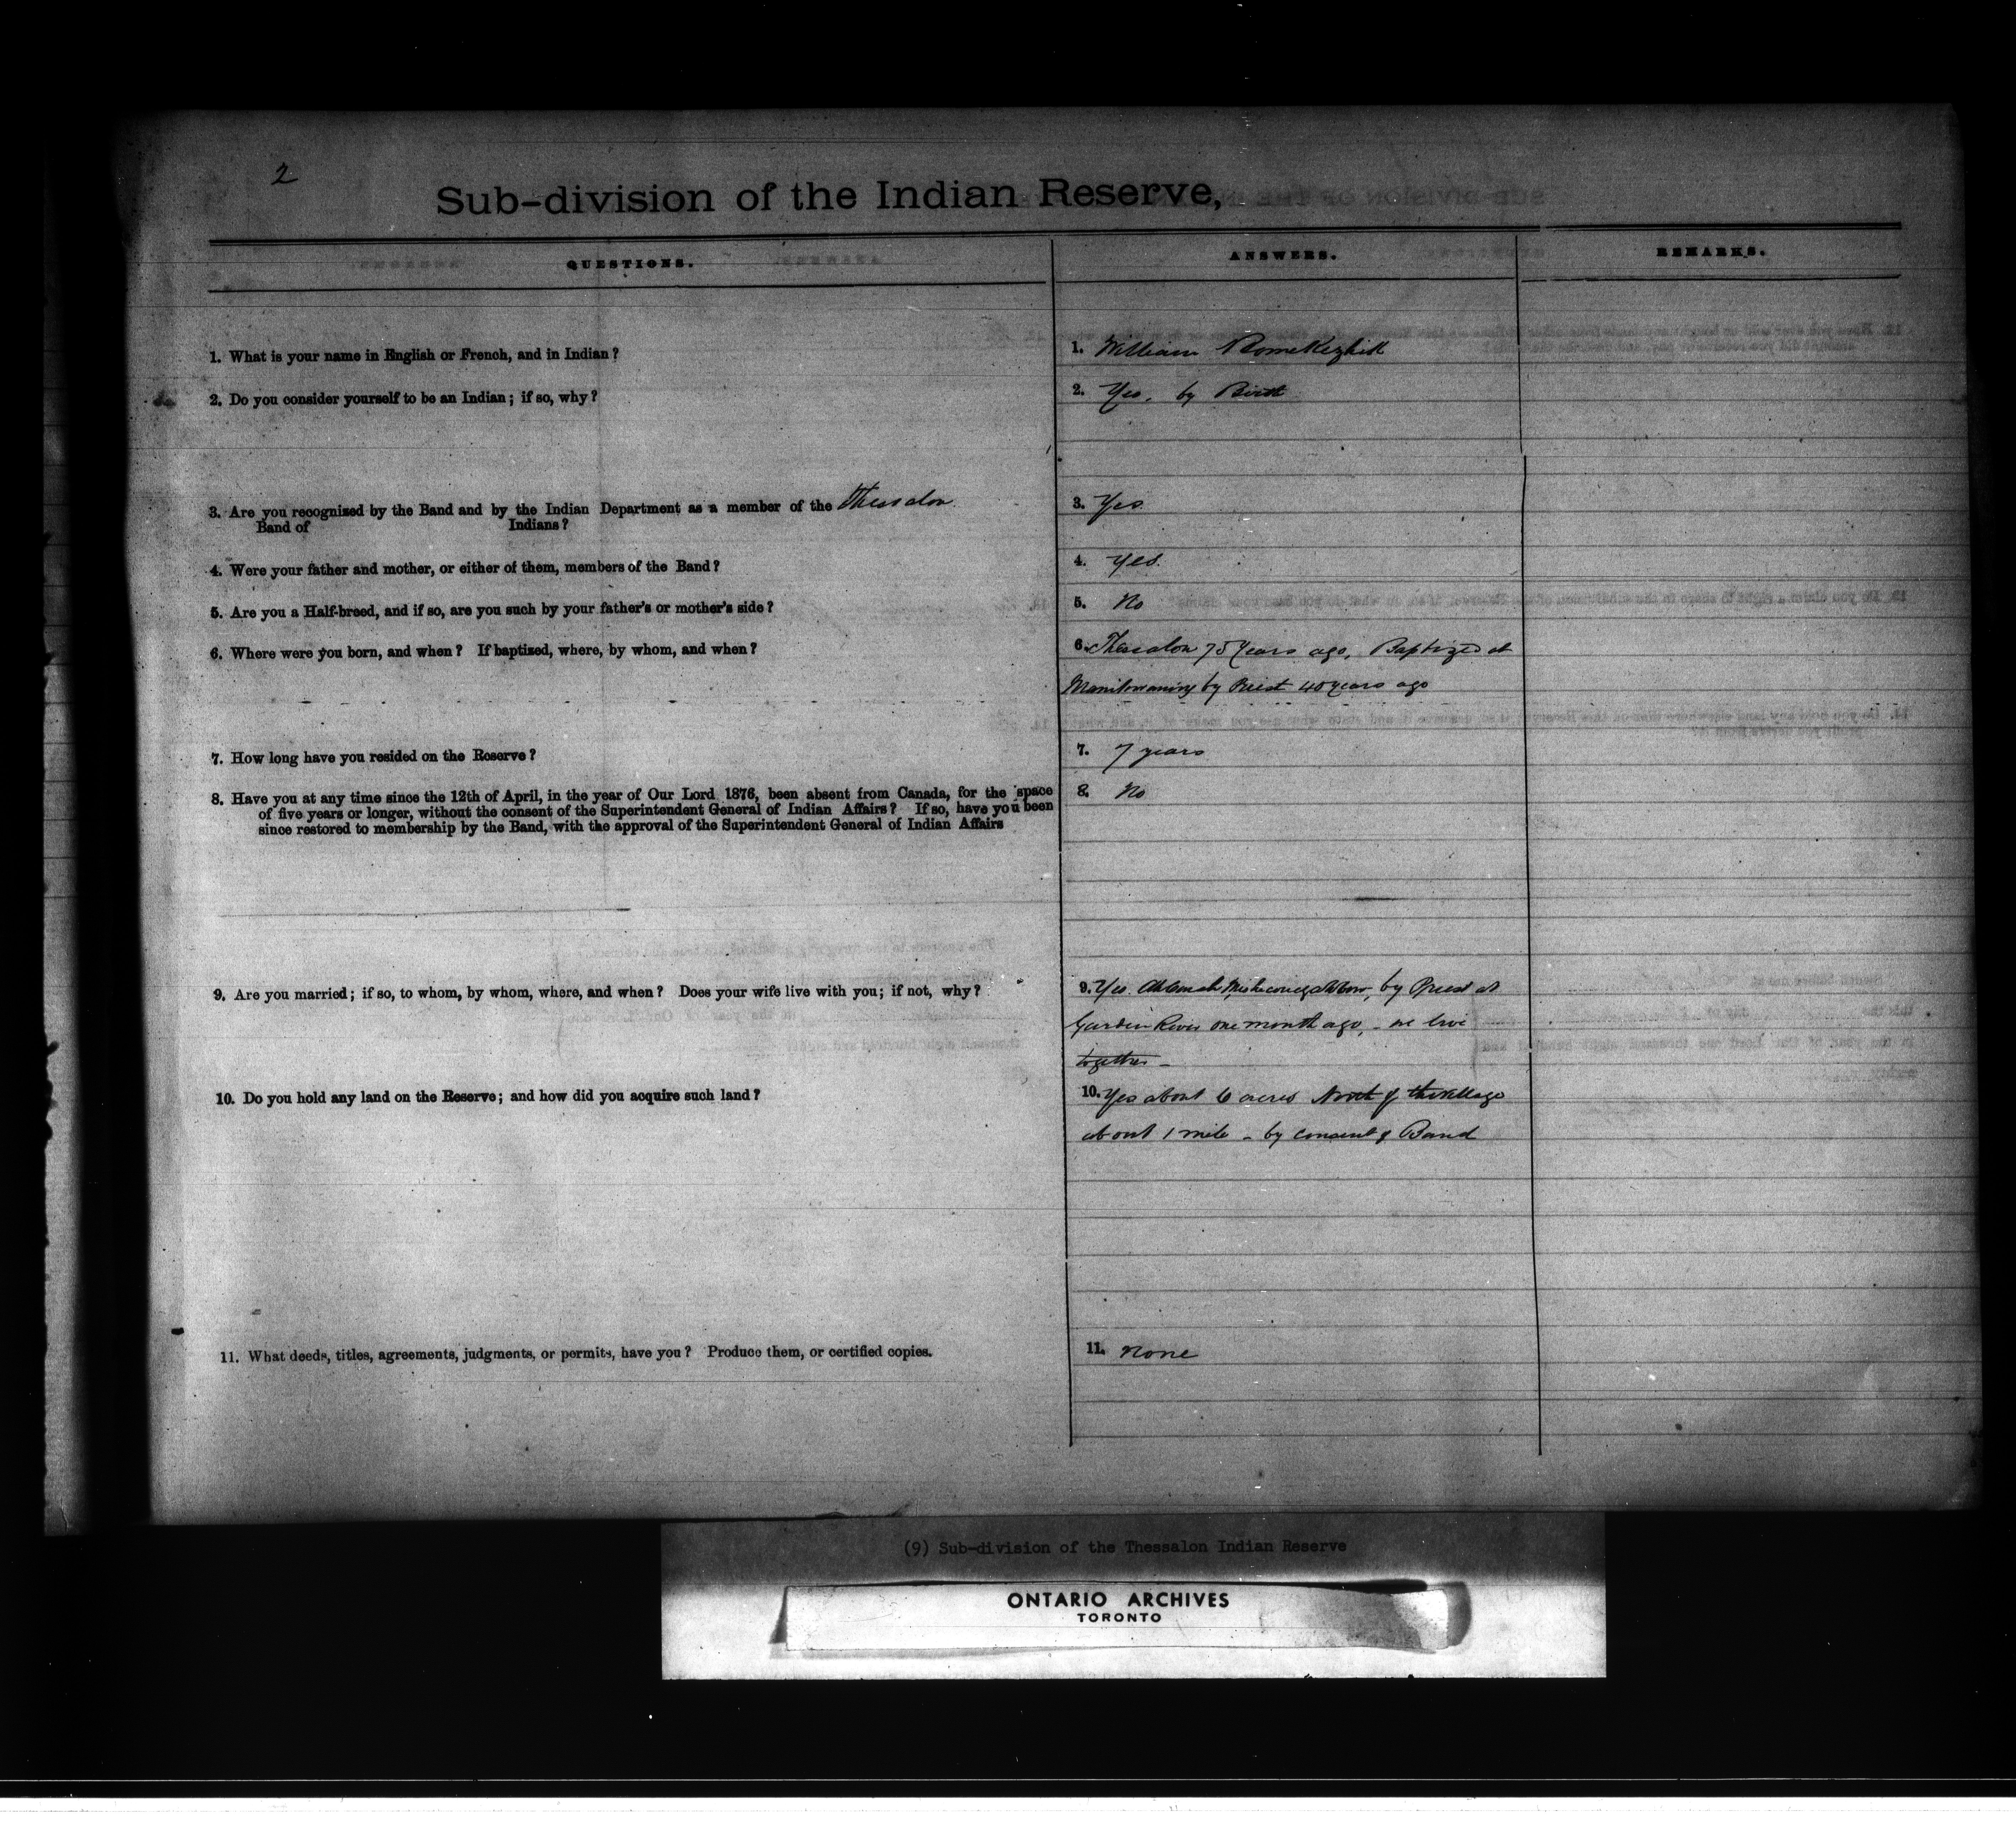 2
Sub-division of the Indian Reserve,
QUESTIONS.
ANSWERS.
REMARKS.
1. What is your name in English or French, and in Indian?
1. William
2. Do you consider yourself to be an Indian; if so, why?
2. Yes, by Birth
3. Are you recognized by the Band and by the Indian Department as a member of the Thessalon
Band of Indians?
3. Yes
4. Were your father and mother, or either of them, members of the Band?
4. Yes.
5. Are you a Half-breed, and if so, are you such by your father's or mother's side?
5. No
6. Where were you born, and when? If baptized, where, by whom, and when?
6. Thessalon 75 Years ago, Baptized at
Manitowaning by Priest 40 years ago
7. How long have you resided on the Reserve?
7. 7 years
8. Have you at any time since the 12th of April, in the year of Our Lord 1876, been absent from Canada, for the space
of five years or longer, without the consent of the Superintendent General of Indian Affairs? If so, have you been
since restored to membership by the Band, with the approval of the Superintendent General of Indian Affairs
8. No
9. Are you married; if so, to whom, by whom, where, and when? Does your wife live with you; if not, why?
9. Yes. by Priest at
Garden River one month ago, - we live
together -
10. Do you hold any land on the Reserve; and how did you acquire such land?
10. Yes about 6 acres North of the Village
about 1 mile - by consent of Band
11. What deeds, titles, agreements, judgments, or permits, have you? Produce them, or certified copies.
11. None
(9) Sub-division of the Thessalon Indian Reserve
ONTARIO ARCHIVES
TORONTO